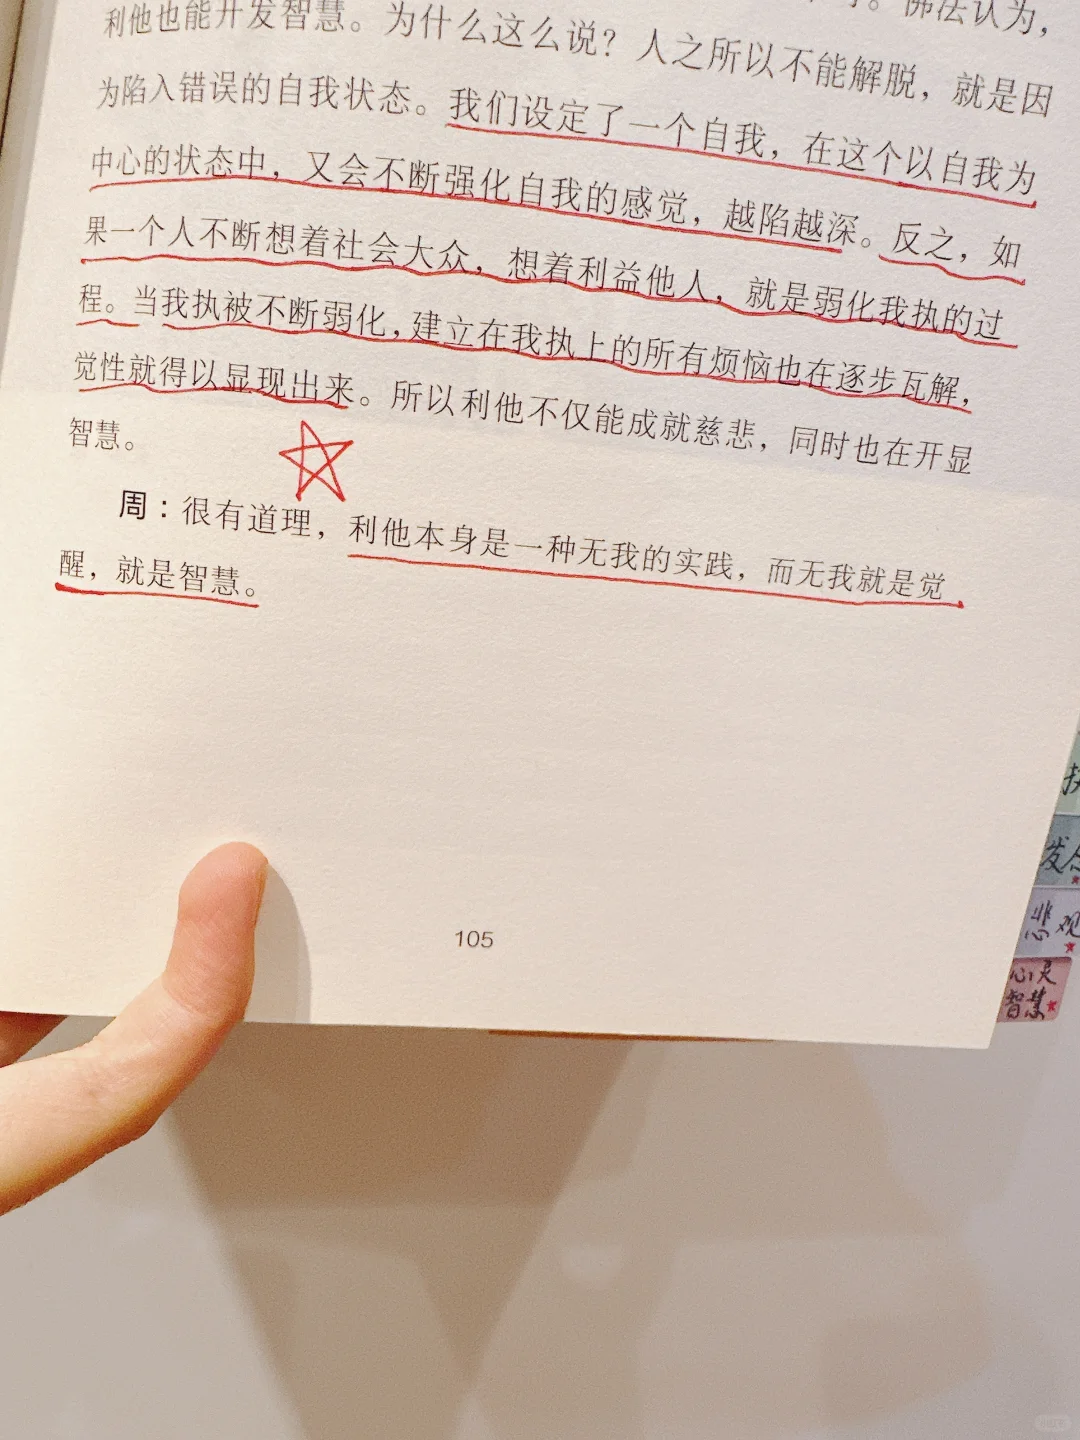 佛法认为，
利他也能开发智慧。为什么这么说？人之所以不能解脱，就是因
为陷入错误的自我状态。我们设定了一个自我，在这个以自我为
中心的状态中，又会不断强化自我的感觉，越陷越深。反之，如
果一个人不断想着社会大众，想着利益他人，就是弱化我执的过
程。当我执被不断弱化，建立在我执上的所有烦恼也在逐步瓦解，
觉性就得以显现出来。所以利他不仅能成就慈悲，同时也在开显
智慧。
周：很有道理，利他本身是一种无我的实践，而无我就是觉
醒，就是智慧。
105
悲观
心灵
智慧